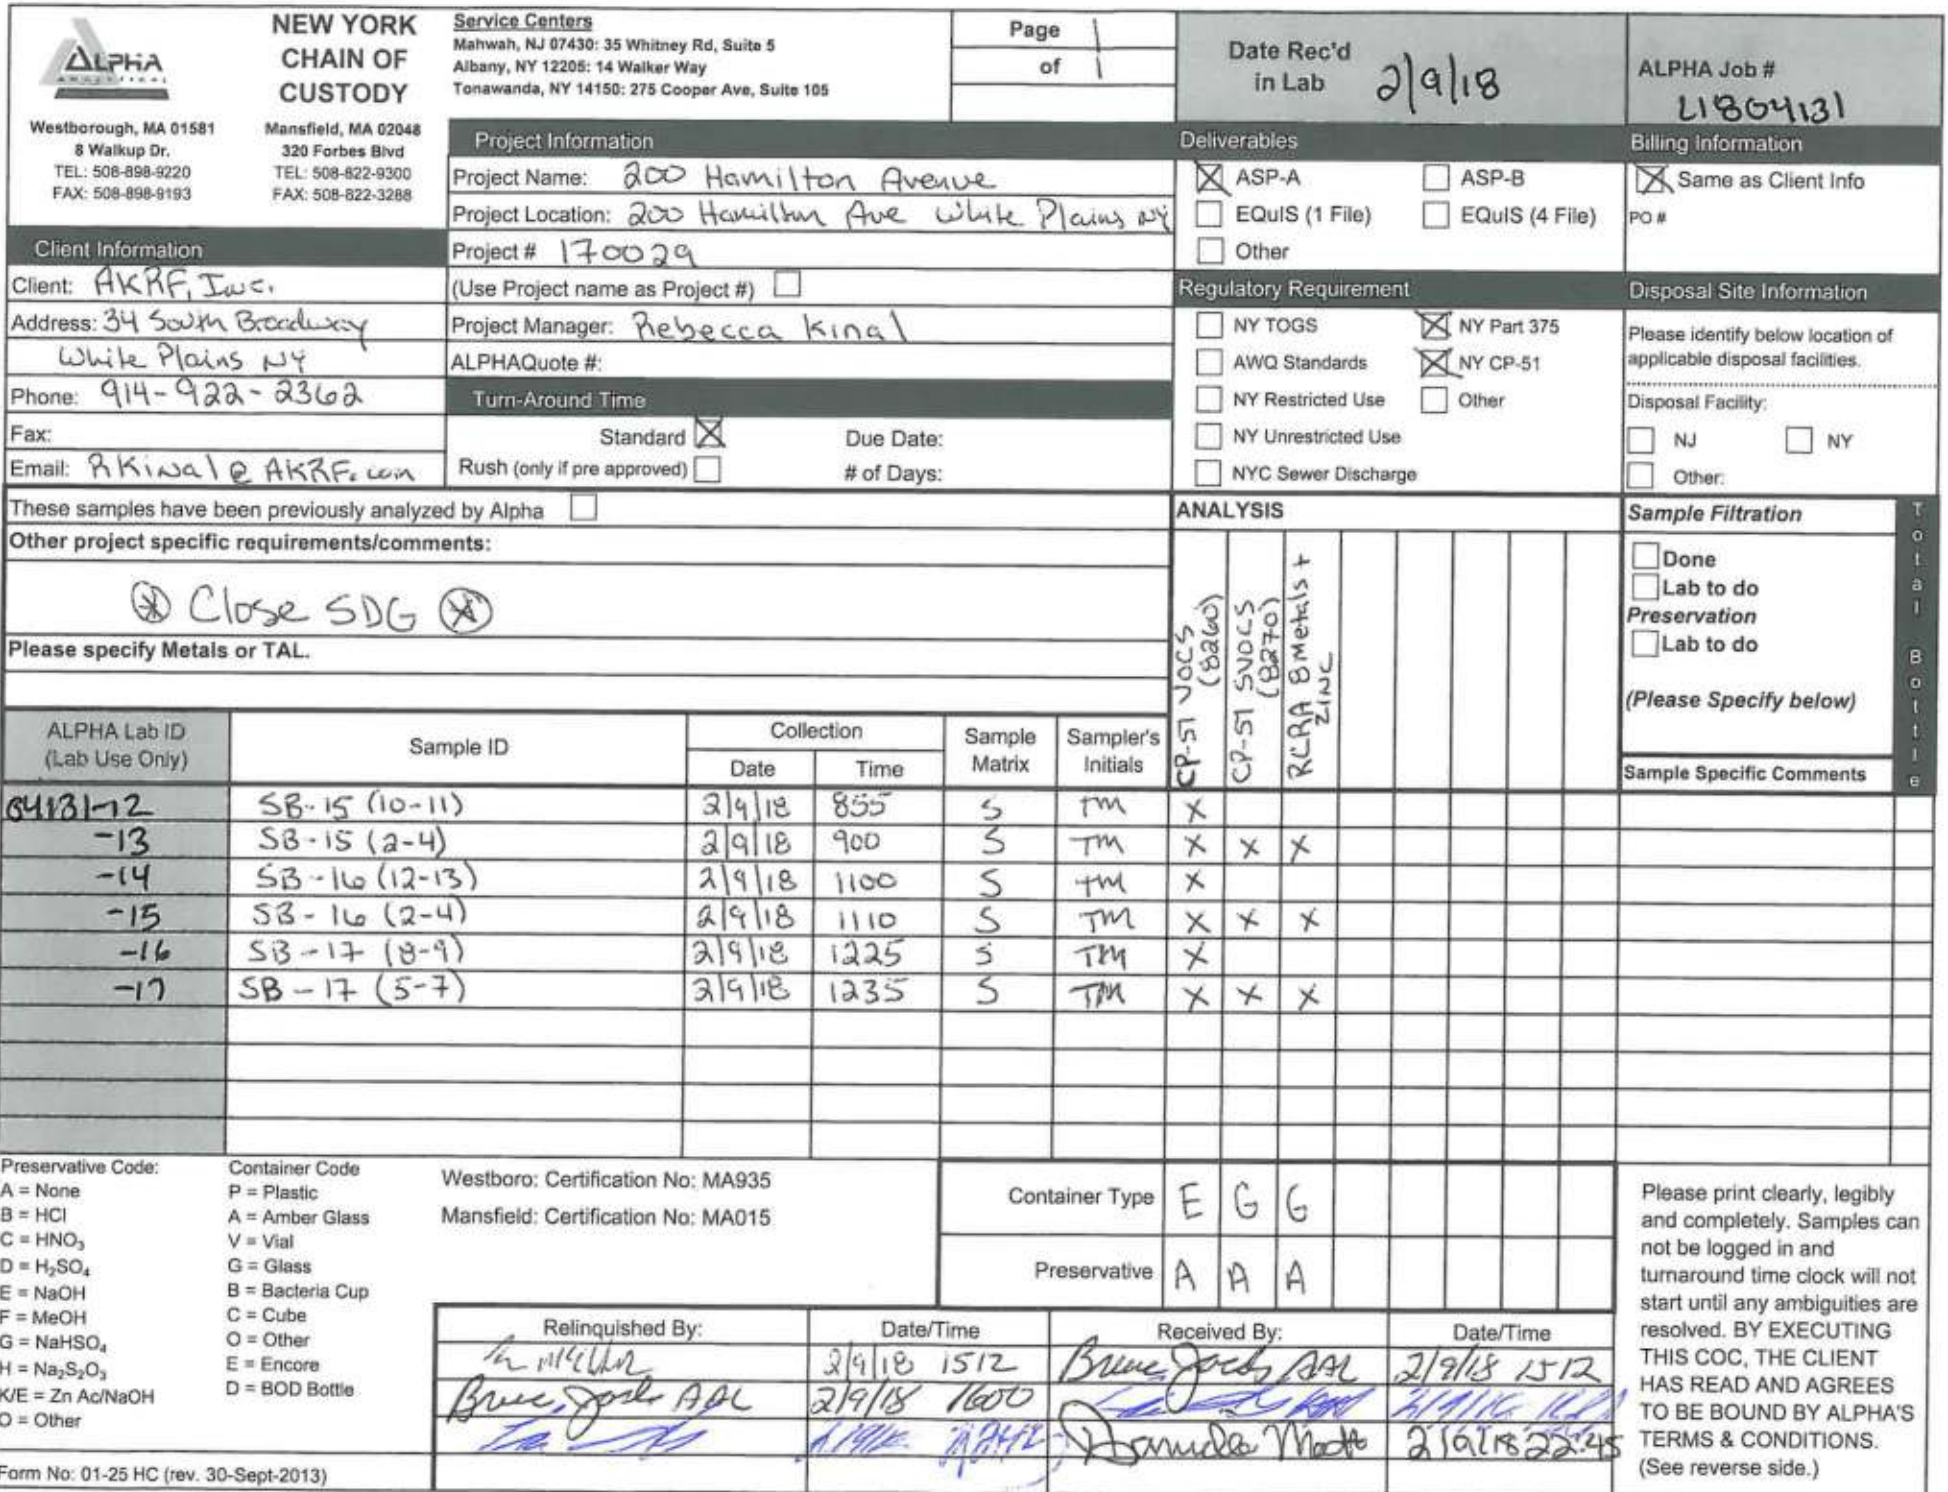 ALPHA
ANALYTICAL
NEW YORK
CHAIN OF
CUSTODY
Westborough, MA 01581
8 Walkup Dr.
TEL: 508-898-9220
FAX: 508-898-9193
Mansfield, MA 02048
320 Forbes Blvd
TEL: 508-822-9300
FAX: 508-822-3288
Service Centers
Mahwah, NJ 07430: 35 Whitney Rd, Suite 5
Albany, NY 12205: 14 Walker Way
Tonawanda, NY 14150: 275 Cooper Ave, Suite 105
Page 1
of 1
Date Rec'd
in Lab 2/9/18
ALPHA Job #
L1804131
Project Information
Project Name: 200 Hamilton Avenue
Project Location: 200 Hamilton Ave White Plains NY
Project # 170029
(Use Project name as Project #)
Project Manager: Rebecca Kinal
ALPHAQuote #:
Turn-Around Time
Standard X Due Date:
Rush (only if pre approved) # of Days:
Deliverables
X ASP-A ASP-B
EQuIS (1 File) EQuIS (4 File)
Other
Billing Information
X Same as Client Info
PO #
Client Information
Client: AKRF, Inc.
Address: 34 South Broadway
White Plains NY
Phone: 914-922-2362
Fax:
Email: RKinal@AKRF.com
Regulatory Requirement
NY TOGS X NY Part 375
AWQ Standards X NY CP-51
NY Restricted Use Other
NY Unrestricted Use
NYC Sewer Discharge
Disposal Site Information
Please identify below location of
applicable disposal facilities.
Disposal Facility:
NJ NY
Other:
These samples have been previously analyzed by Alpha
Other project specific requirements/comments:
* Close SDG *
Please specify Metals or TAL.
ANALYSIS
CP-51 VOCS
(8260)
CP-51 SVOCS
(8270)
RCRA 8 Metals +
ZINC
Sample Filtration
Done
Lab to do
Preservation
Lab to do
(Please Specify below)
Sample Specific Comments
Total Bottle
ALPHA Lab ID
(Lab Use Only)
Sample ID
Collection
Date Time
Sample
Matrix
Sampler's
Initials
04131-12 SB-15 (10-11) 2/9/18 855 S TM X
-13 SB-15 (2-4) 2/9/18 900 S TM X X X
-14 SB-16 (12-13) 2/9/18 1100 S TM X
-15 SB-16 (2-4) 2/9/18 1110 S TM X X X
-16 SB-17 (8-9) 2/9/18 1225 S TM X
-17 SB-17 (5-7) 2/9/18 1235 S TM X X X
Preservative Code:
A = None
B = HCl
C = HNO₃
D = H₂SO₄
E = NaOH
F = MeOH
G = NaHSO₄
H = Na₂S₂O₃
K/E = Zn Ac/NaOH
O = Other
Container Code
P = Plastic
A = Amber Glass
V = Vial
G = Glass
B = Bacteria Cup
C = Cube
O = Other
E = Encore
D = BOD Bottle
Westboro: Certification No: MA935
Mansfield: Certification No: MA015
Container Type E G G
Preservative A A A
Relinquished By: Date/Time Received By: Date/Time
2/9/18 1512 Bruce AAL 2/9/18 1512
Bruce AAL 2/9/18 1600
2/9/18 22:45
Please print clearly, legibly
and completely. Samples can
not be logged in and
turnaround time clock will not
start until any ambiguities are
resolved. BY EXECUTING
THIS COC, THE CLIENT
HAS READ AND AGREES
TO BE BOUND BY ALPHA'S
TERMS & CONDITIONS.
(See reverse side.)
Form No: 01-25 HC (rev. 30-Sept-2013)